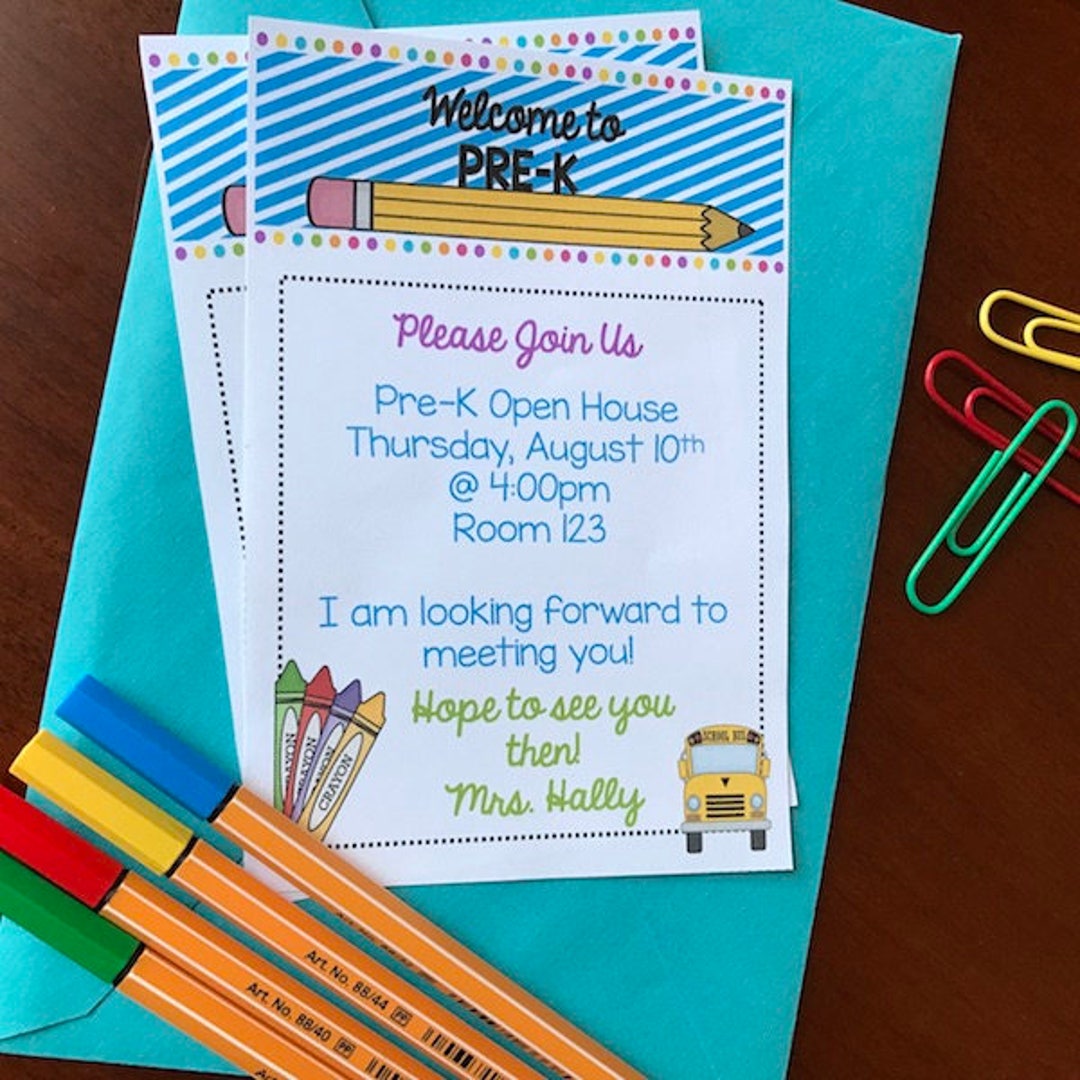 Welcome to
PRE-K
Please Join Us
Pre-K Open House
Thursday, August 10th
@ 4:00pm
Room 123
I am looking forward to
meeting you!
Hope to see you
then!
Mrs. Hally
CRAYON
SCHOOL BUS
Art. No. 88/44 PP
Art. No. 88/40 PP
Art.